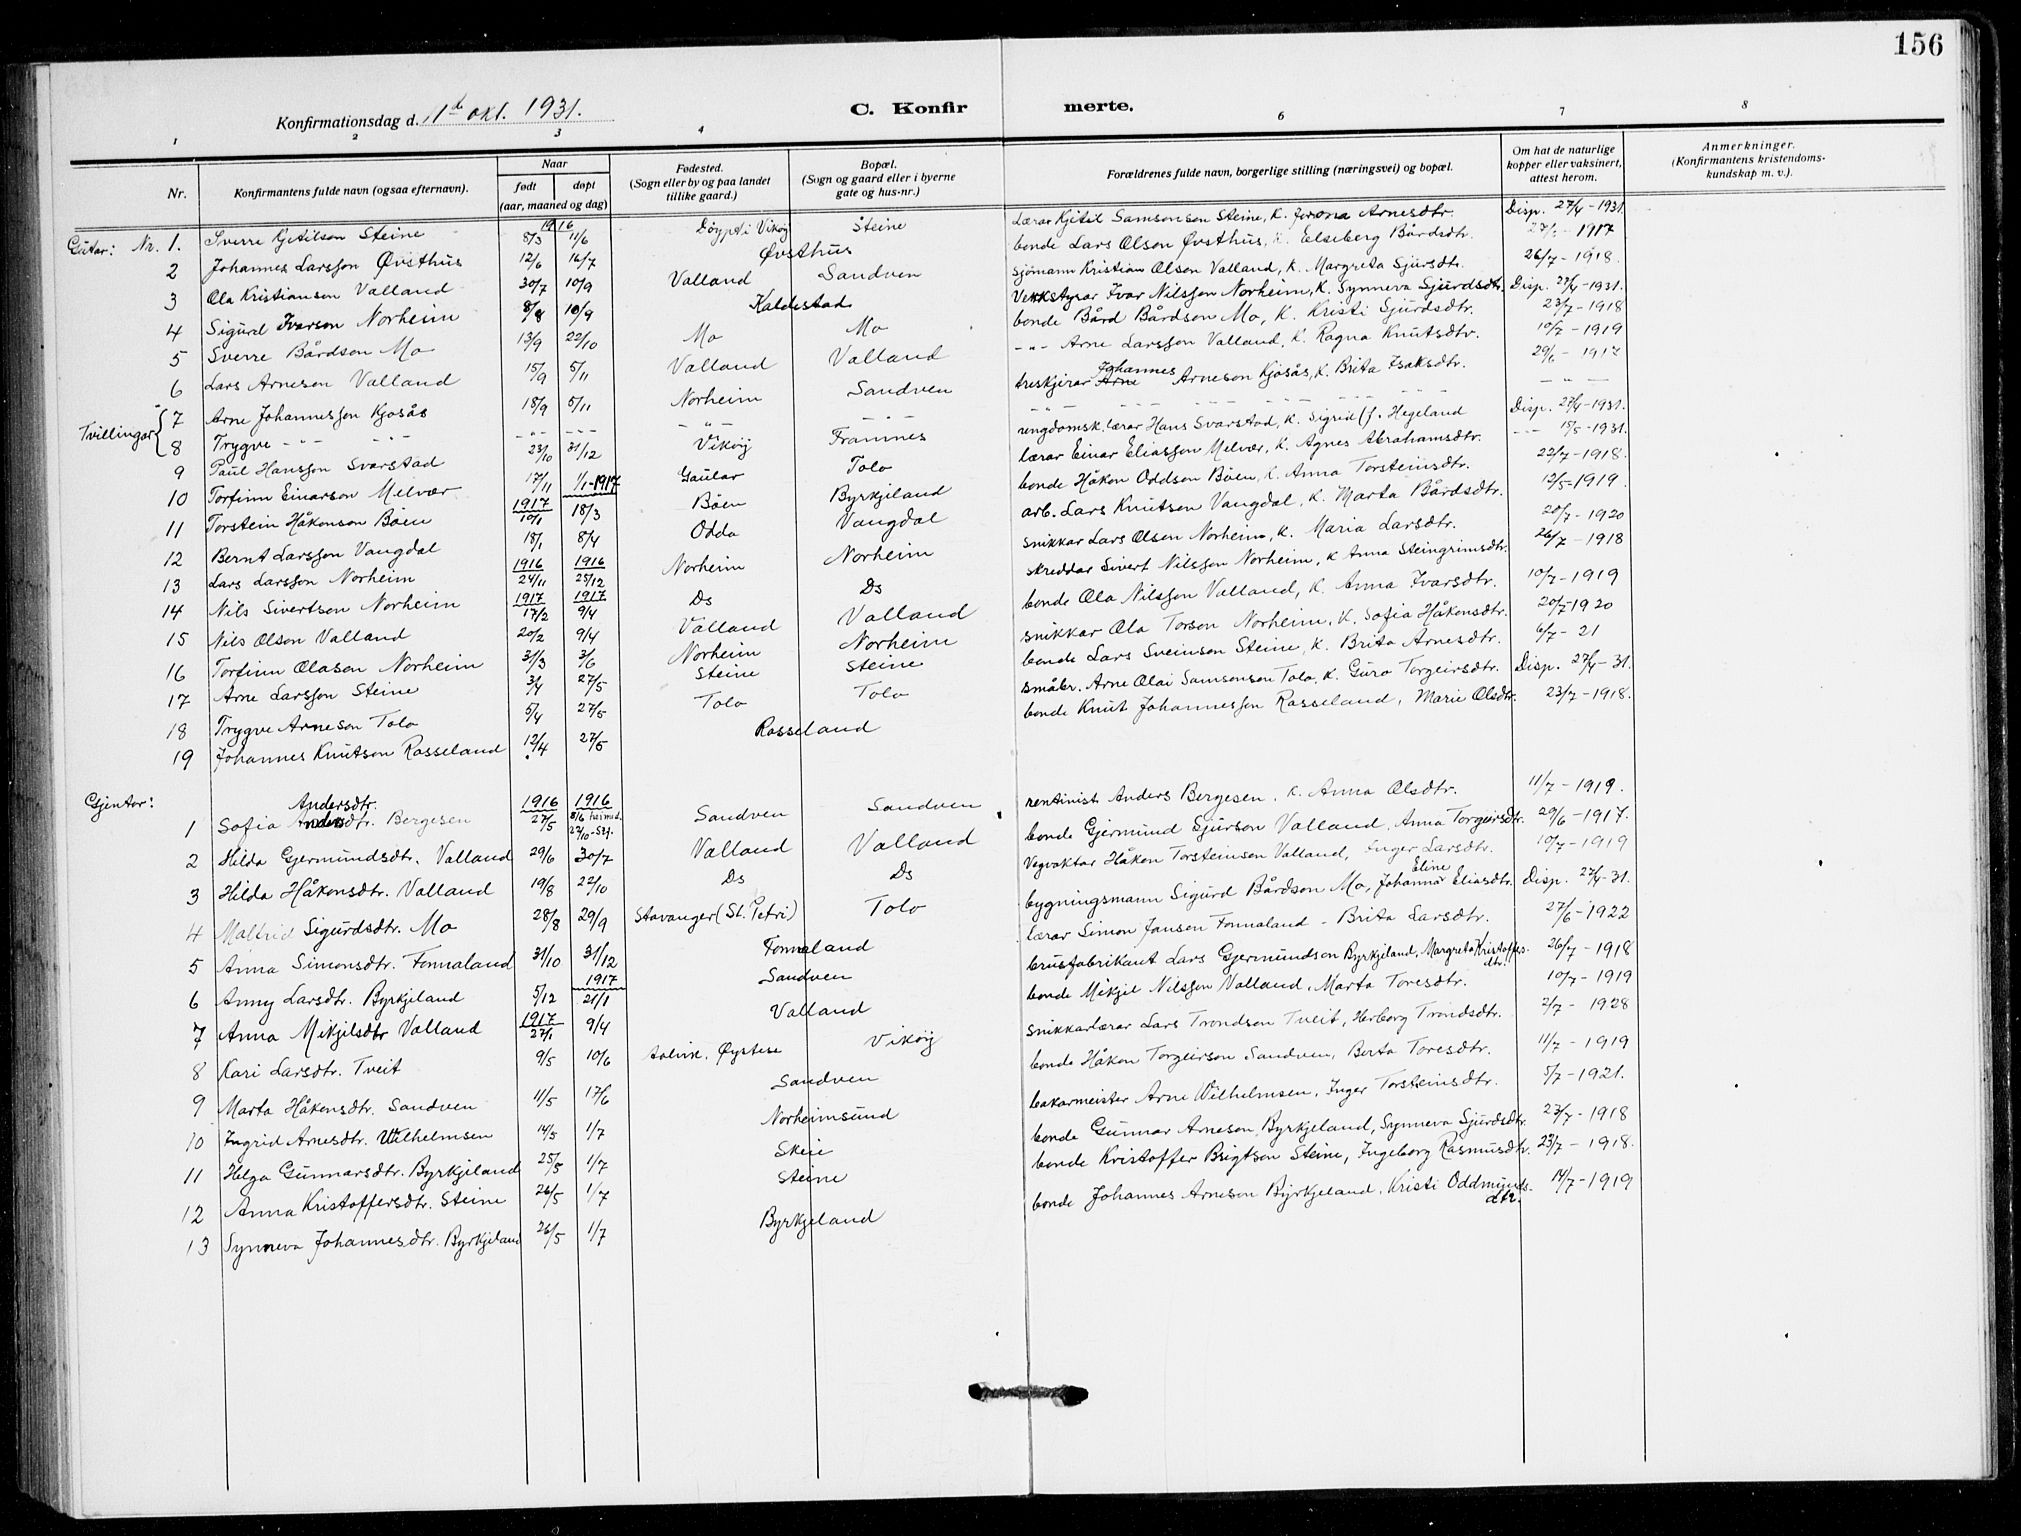 156
Konfirmationsdag d. 1de okt. 1931.
C. Konfirmerte.
1 2 3 4 6 7 8
Nr. Konfirmantens fulde navn (ogsaa efternavn). Naar født døpt (aar, maaned og dag) Fødested. (Sogn eller by og paa landet tillike gaard.) Bopæl. (Sogn og gaard eller i byerne gate og hus-nr.) Forældrenes fulde navn, borgerlige stilling (næringsvei) og bopæl. Om hat de naturlige kopper eller vaksinert, attest herom. Anmerkninger. (Konfirmantens kristendoms-kundskap m. v.).
1916
Gutar: Nr. 1. Sverre Kjetilson Steine 8/3 11/6 Døypt i Vikøy Steine Lærar Kjetil Samsonson Steine, K. Arnesdtr. Disp. 27/4-1931.
2 Johannes Larsson Øvsthus 12/6 16/7 Øvsthus bonde Lars Olson Øvsthus, K. Elseberg Bårdsdtr. 1917
3 Ola Kristianson Valland 30/7 10/9 Valland Sandven sjømann Kristian Olson Valland, K. Margreta Sjursdtr. 26/7-1918.
4 Sigurd Ivarson Norheim 8/8 10/9 Kaldestad Ivar Nilsson Norheim, K. Synneva Sjurdsdtr. Disp. 27/4-1931.
5 Sverre Bårdson Mo 13/9 22/10 Mo Mo bonde Bård Bårdson Mo, K. Kristi Sjurdsdtr. 23/7-1918
6 Lars Arneson Valland 15/9 5/11 Valland Valland -"- Arne Larsson Valland, K. Ragna Knutsdtr. 10/7-1919
Tvillingar { 7 Arne Johannesson Kjosås 18/9 5/11 Norheim Sandven treskjerar Arne Johannes Arneson Kjosås, K. Brita Isaksdtr. 29/6-1917
8 Trygve -"- -"- -"- -"- -"- -"-
9 Paul Hansson Svarstad 23/10 31/12 Vikøy Framnes ungdomsk.lærar Hans Svarstad, K. Sigrid f. Hegeland Disp. 27/4-1931.
10 Torfinn Einarson Melvær 17/11 1/1-1917 Gaular Tolo lærar Einar Eliasson Melvær, K. Agnes Abrahamsdtr. -"- 18/5-1931.
11 Torstein Håkonson Bøen 1917 10/1 18/3 Bøen Byrkjeland bonde Håkon Oddson Bøen, K. Anna Torsteinsdtr. 22/7-1918.
12 Bernt Larsson Vangdal 18/1 8/4 Odda Vangdal arb. Lars Knutson Vangdal, K. Marta Bårdsdtr. 12/5-1919.
13 Lars Larsson Norheim 1916 24/11 1916 25/12 Norheim Norheim snikkar Lars Olson Norheim, K. Maria Larsdtr. 20/7-1920
14 Nils Sivertson Norheim 1917 17/2 1917 9/4 Ds Ds skreddar Sivert Nilsson Norheim, K Anna Steingrimsdtr. 26/7-1918
15 Nils Olson Valland 20/2 9/4 Valland Valland bonde Ola Nilsson Valland, K. Anna Ivarsdtr. 10/7-1919
16 Torfinn Olason Norheim 31/3 3/6 Norheim Norheim snikkar Ola Torson Norheim, K. Sofia Håkonsdtr. 20/7-1920
17 Arne Larsson Steine 3/4 27/5 Steine Steine bonde Lars Sveinson Steine, K. Brita Arnesdtr. 6/7-21
18 Trygve Arneson Tolo 5/4 27/5 Tolo Tolo småbr. Arne Olai Samsonson Tolo, K. Guro Torgeirsdtr. Disp. 27/4-31.
19 Johannes Knutson Rosseland 12/4 27/5 Rosseland bonde Knut Johannesson Rosseland, Marie Olsdtr. 23/7-1918.
Gjentor:
1 Sofia Andersdtr. Bergesen 1916 27/5 1916 8/6 heimed. 27/10 Sandven Sandven rentinist Anders Bergesen, K. Anna Olsdtr. 11/7-1919.
2 Hilda Gjermundsdtr. Valland 29/6 30/7 Valland Valland bonde Gjermund Sjurson Valland, Anna Torgeirsdtr. 29/6-1917.
3 Hilda Håkonsdtr. Valland 19/8 22/10 Ds Ds Vegvaktar Håkon Torsteinson Valland, Inger Larsdtr. 10/7-1919
4 Malfrid Sigurdsdtr. Mo 28/8 29/9 Stavanger (St. Petri) Tolo bygningsmann Sigurd Bårdson Mo, Johanna Eline Eliasdtr. Disp. 27/4-31.
5 Anna Simonsdtr. Fonnaland 31/10 31/12 Fonnaland lærar Simon Jansen Fonnaland - Brita Larsdtr. 27/6-1922
6 Anny Larsdtr. Byrkjeland 5/12 1917 21/1 Sandven brusfabrikant Lars Gjermundson Byrkjeland, Margreta Kristoffersdtr. 26/7-1918
7 Anna Mikjelsdtr Valland 1917 27/1 9/4 Valland bonde Mikjel Nilsson Valland, Marta Toresdtr. 10/7-1919
8 Kari Larsdtr. Tveit 9/5 10/6 Aalvik, Øystese Vikøy snikkarlærar Lars Trondson Tveit, Herborg Trondsdtr. 2/7-1928
9 Marta Håkonsdtr. Sandven 11/5 17/6 Sandven bonde Håkon Torgeirson Sandven, Berta Toresdtr. 11/7-1919
10 Ingrid Arnesdtr. Wilhelmsen 14/5 1/7 Norheimsund bakarmeister Arne Wilhelmsen, Inger Torsteinsdtr. 5/7-1921.
11 Helga Gunnarsdtr. Byrkjeland 25/5 1/7 Skeie bonde Gunnar Arneson Byrkjeland, Synneva Sjurdsdtr. 23/7-1918
12 Anna Kristoffersdtr. Steine 26/5 1/7 Steine bonde Kristoffer Brigtson Steine, Ingeborg Rasmusdtr. 23/7-1918.
13 Synneva Johannesdtr. Byrkjeland 26/5 1/7 Byrkjeland bonde Johannes Arneson Byrkjeland, Kristi Oddmundsdtr. 14/7-1919